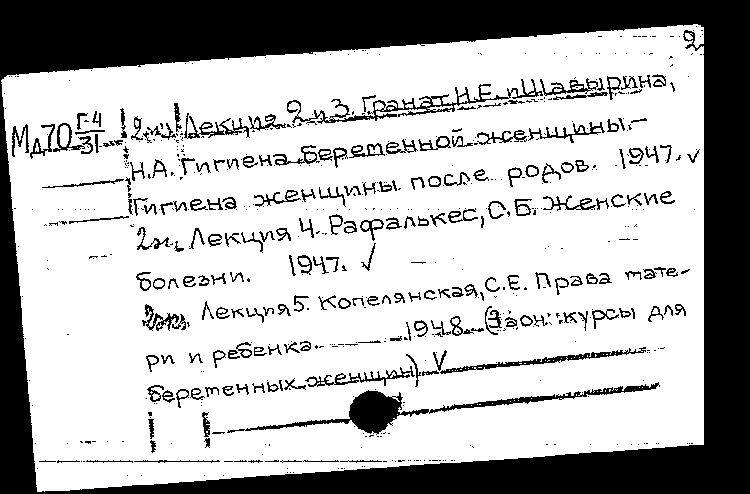 2
Мд70 Г-4/31 2 экз. Лекция 2 и 3. Гранат, Н.Е. и Шавырина,
Н.А. Гигиена беременной женщины.-
Гигиена женщины после родов. 1947. ✓
2 экз. Лекция 4. Рафалькес, С.Б. Женские
болезни. 1947. ✓
2 экз. Лекция 5. Копелянская, С.Е. Права мате-
ри и ребенка. 1948 (Заоч. курсы для
беременных женщин) ✓